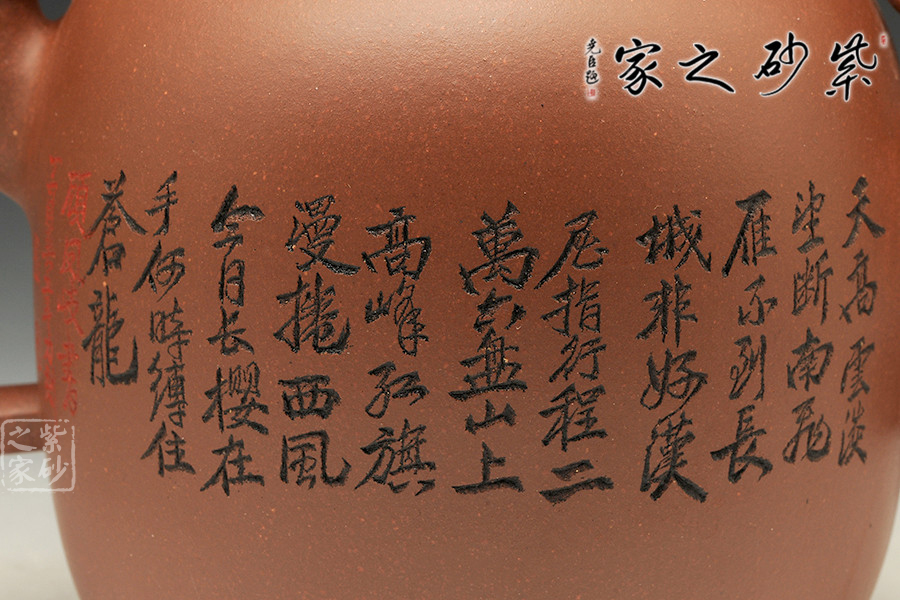 紫砂之家
尧臣题
天高雲淡
望断南飛
雁不到長
城非好漢
屈指行程二
萬六盘山上
高峰红旗
漫捲西風
今日长櫻在
手何時縛住
蒼龍
紫砂之家